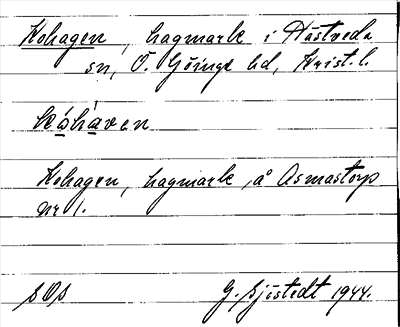 Kohagen, hagmark i Hästveda
sn, Ö. Göinge hd, Krist. l.
kåháven
Kohagen, hagmark, å Asmastorp
nr 1.
SOS
G. Sjöstedt 1944.